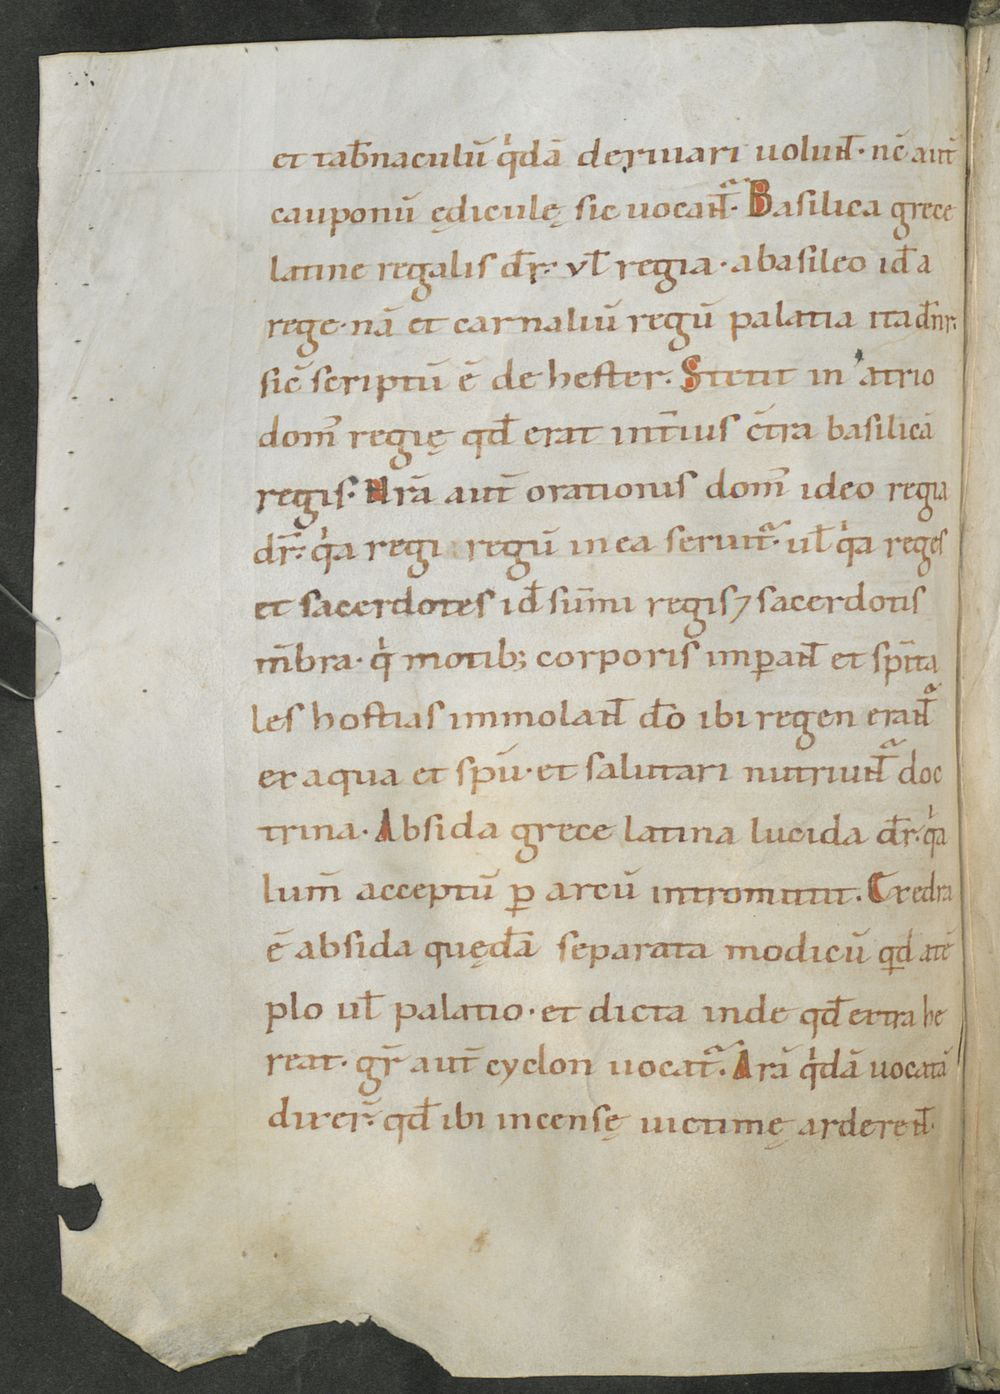 et tab̄naculū q̇dā deriuari uolun̄t· nc̄ aut̄
cauponū ędiculę sic uocan̄tᷓ· Basilica grece
latine regalis dr̄· vl̄ regia· abasileo id̄ a
rege· nā et carnaliū regū palatia ita dn̄r·
sic̄ scriptū ē de hester. Stetit in atrio
dom᷒ regię qd̄ erat int̄ius c̄tra basilicā
regis· Nr̄ā aut̄ orationis dom᷒ ideo regia
dr̄· q̇a regi regū in ea seruitᷓ· ul̄ q̇a reges
et sacerdotes id̄ sūmi regis ⁊ sacerdotis
m̄bra· q̇ motib; corporis imꝑan̄t et sp̄ita
les hostias immolan̄t dō ibi regen eran̄tᷓ
ex aqua et sp̄u· et salutari nutriun̄tᷓ doc
trina· Absida grece latina lucida dr̄· q̇a
lum̄ acceptū ꝑ arcū intromittit. Exedra
ē absida quędā separata modicū qd̄ a tē
plo ul̄ palatio· et dicta inde qd̄ extra he
reat· gr̄ aut̄ cyclon uocatᷓ. Arā q̇dā uocatā
dixer̄· qd̄ ibi incensę uictimę arderen̄t·